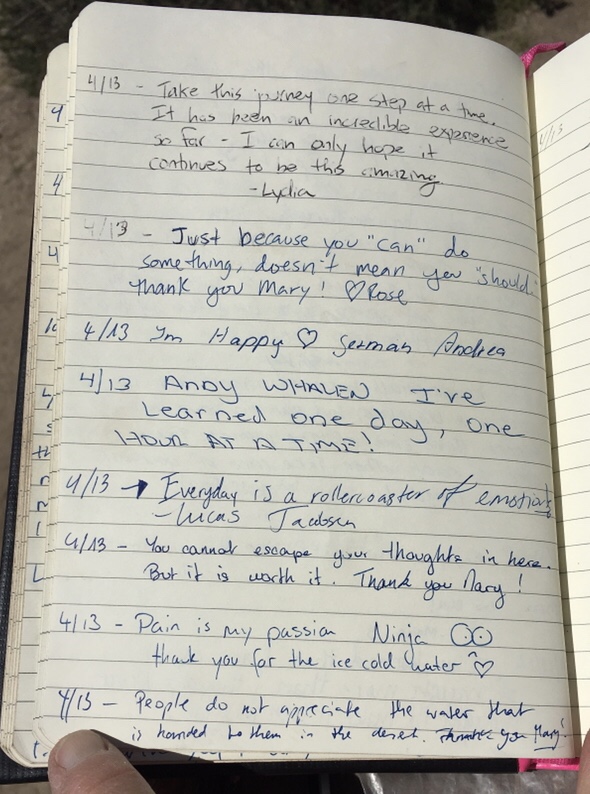 4/13 - Take this journey one step at a time.
It has been an incredible experience
so far - I can only hope it
continues to be this amazing
-Lydia
4/13 - Just because you "can" do
something, doesn't mean you "should.
Thank you Mary! ♡Rose
4/13 I'm Happy ♡ German Andrea
4/13 ANDY WHALEN I've
Learned one day, one
HOUR AT A TIME!
4/13 → Everyday is a rollercoaster of emotions
- Lucas Jacobsen
4/13 - You cannot escape your thoughts in here.
But it is worth it. Thank you Mary!
4/13 - Pain is my passion Ninja
thank you for the ice cold water ♡
4/13 - People do not appreciate the water that
is handed to them in the desert. Thank you Mary!
4/13
4
4
4